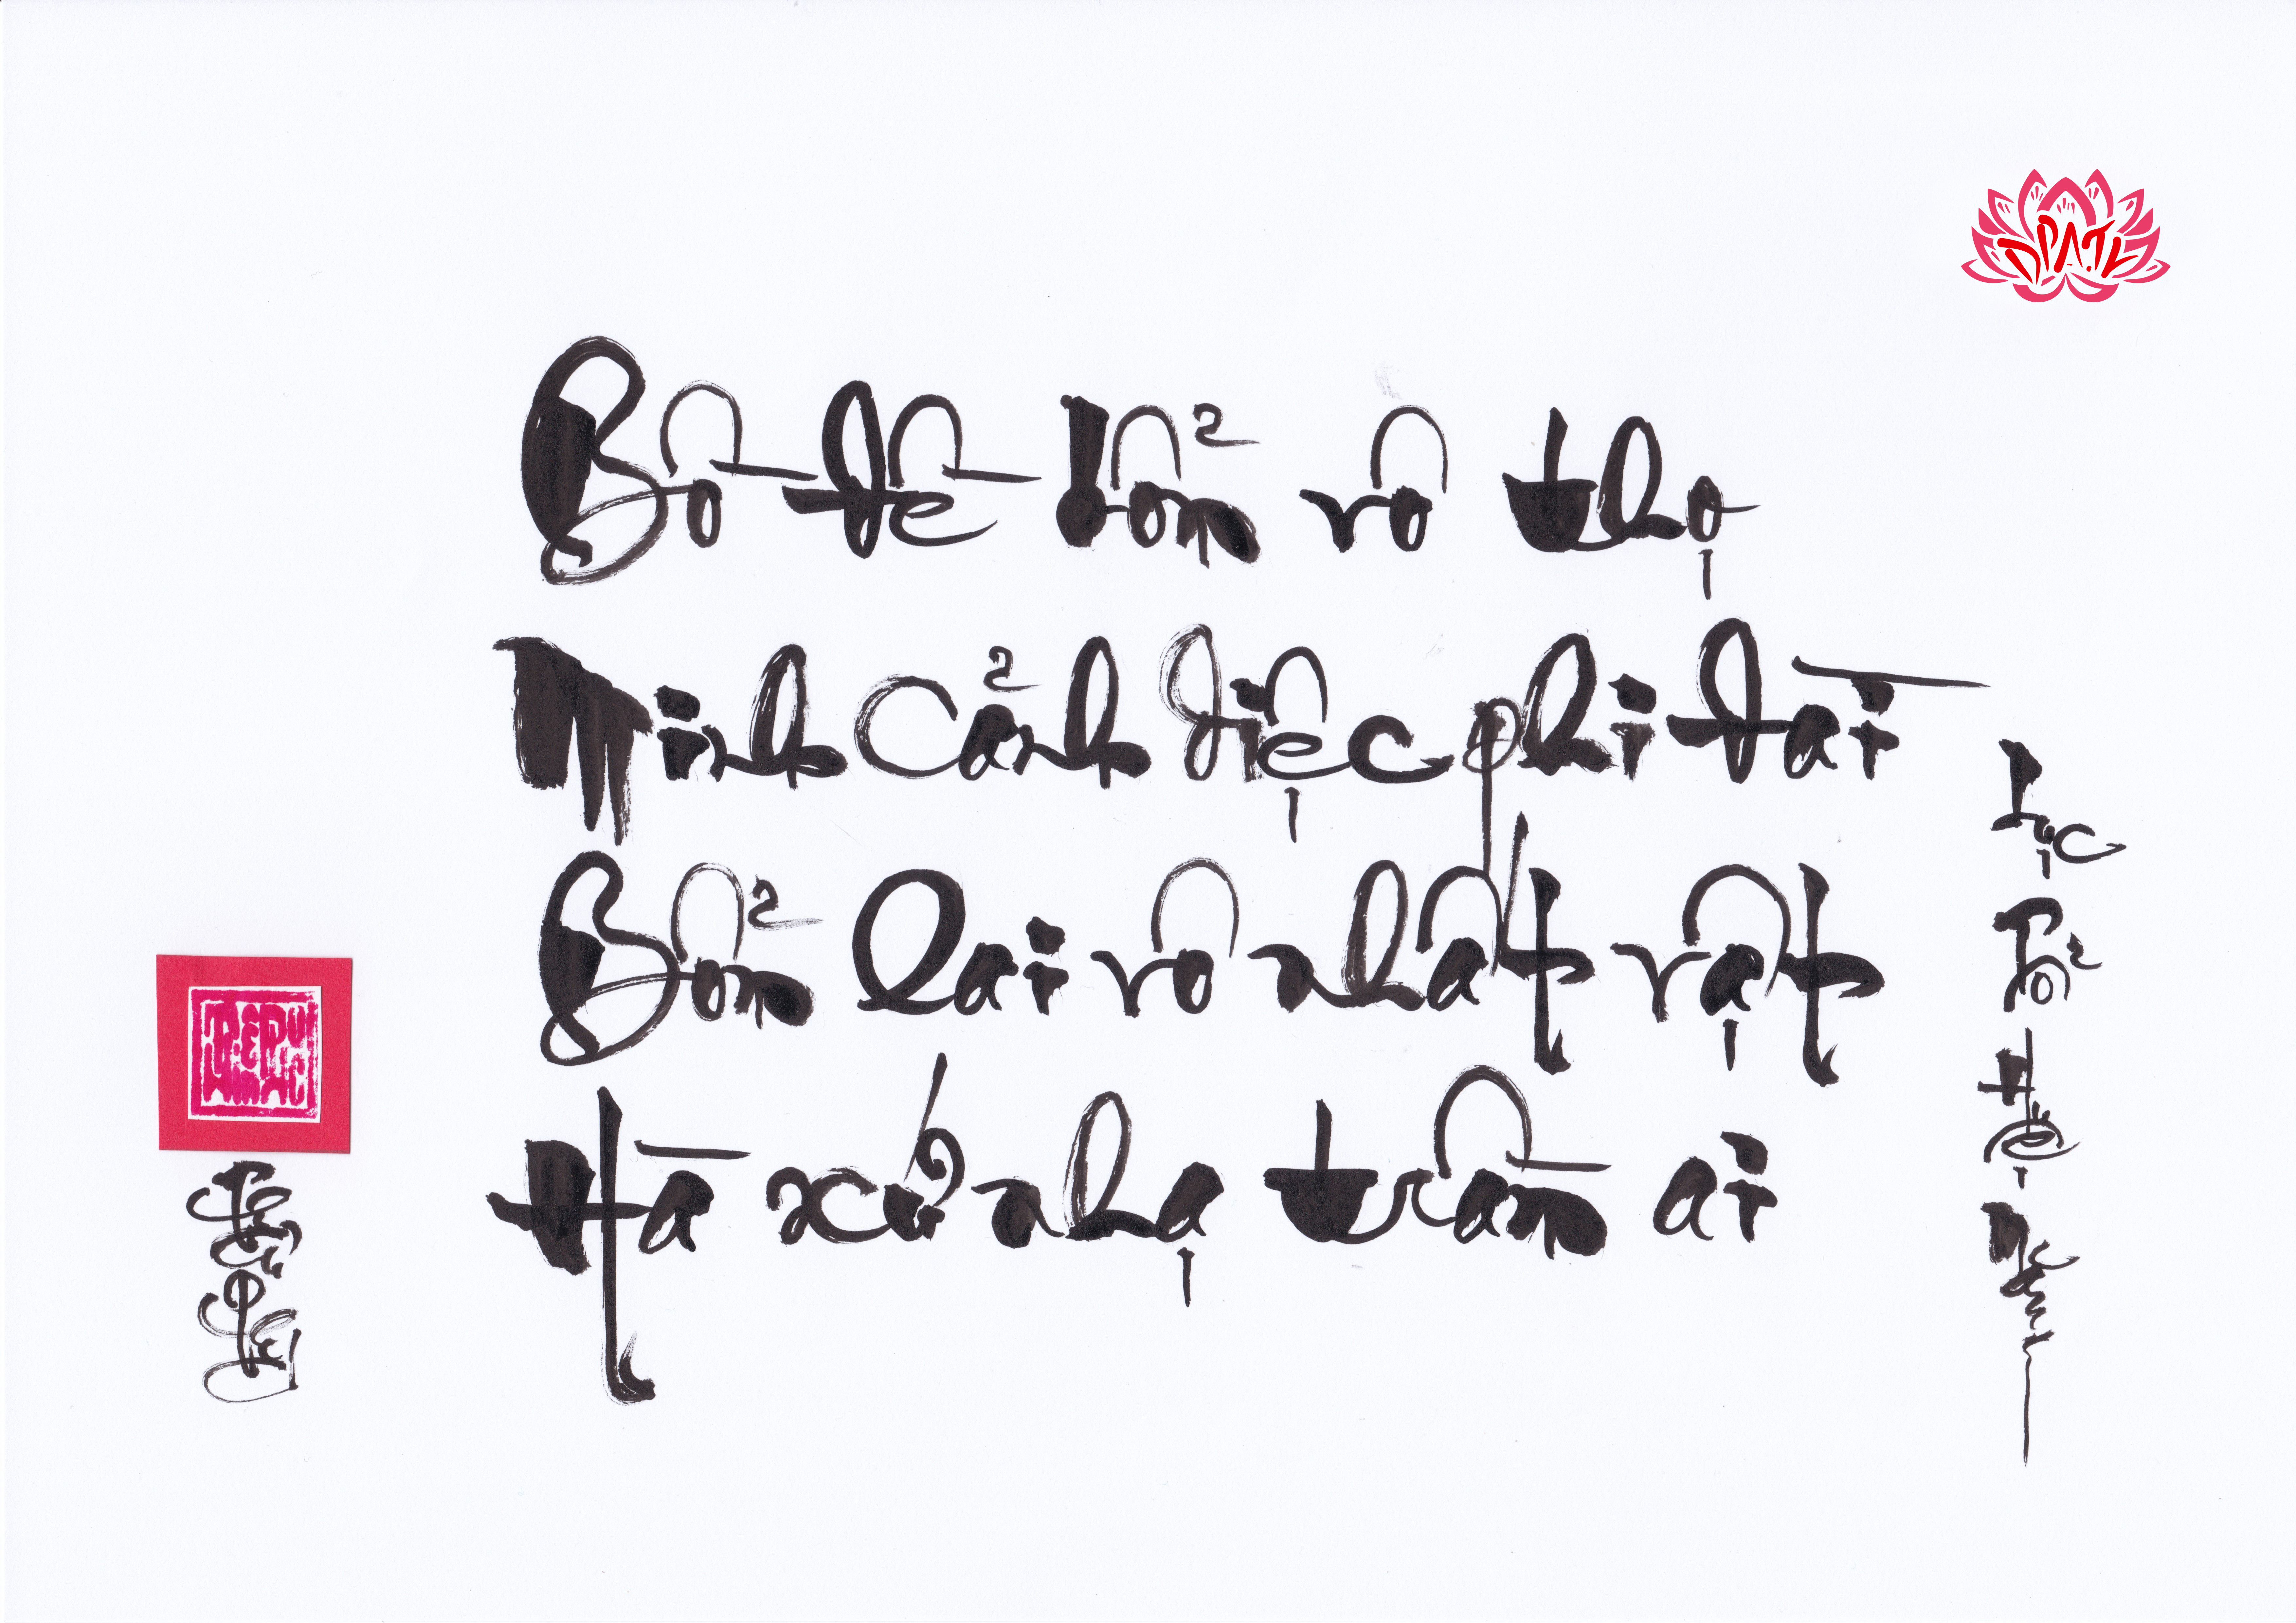 Bồ đề bổn vô thọ
Minh cảnh diệc phi đài
Bổn lai vô nhất vật
Hà xứ nhạ trần ai
Lục Tổ Huệ Năng